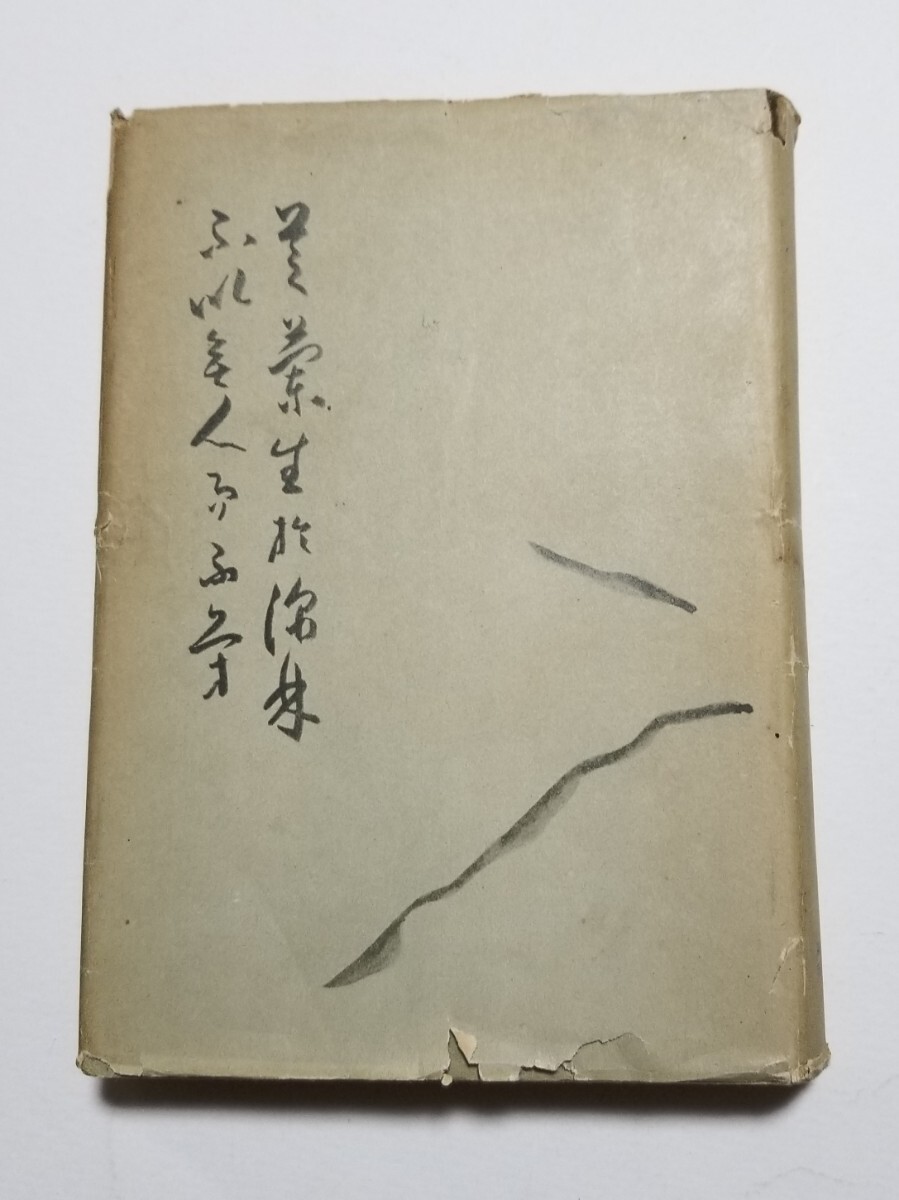 芝蘭生於深林
不以無人而不芳